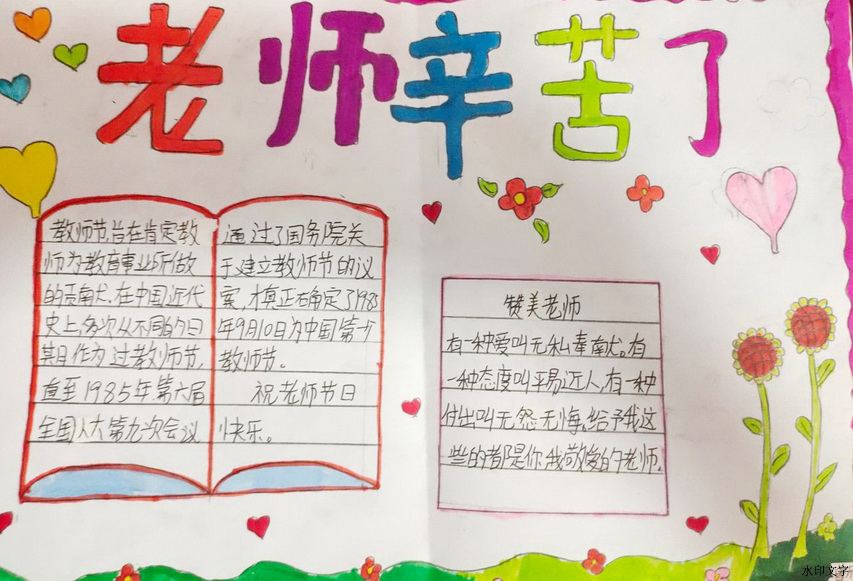 老师辛苦了
教师节,旨在肯定教
师为教育事业所做
的贡献。在中国近代
史上,多次从不同的日
期作为过教师节,
直至1985年第六届
全国人大第九次会议
通过了国务院关
于建立教师节的议
案,才真正确定了1985
年9月10日为中国第一个
教师节。
祝老师节日
快乐。
赞美老师
有一种爱叫无私奉献。有
一种态度叫平易近人,有一种
付出叫无怨无悔,给予我这
些的都是你,我敬爱的老师.
水印文字